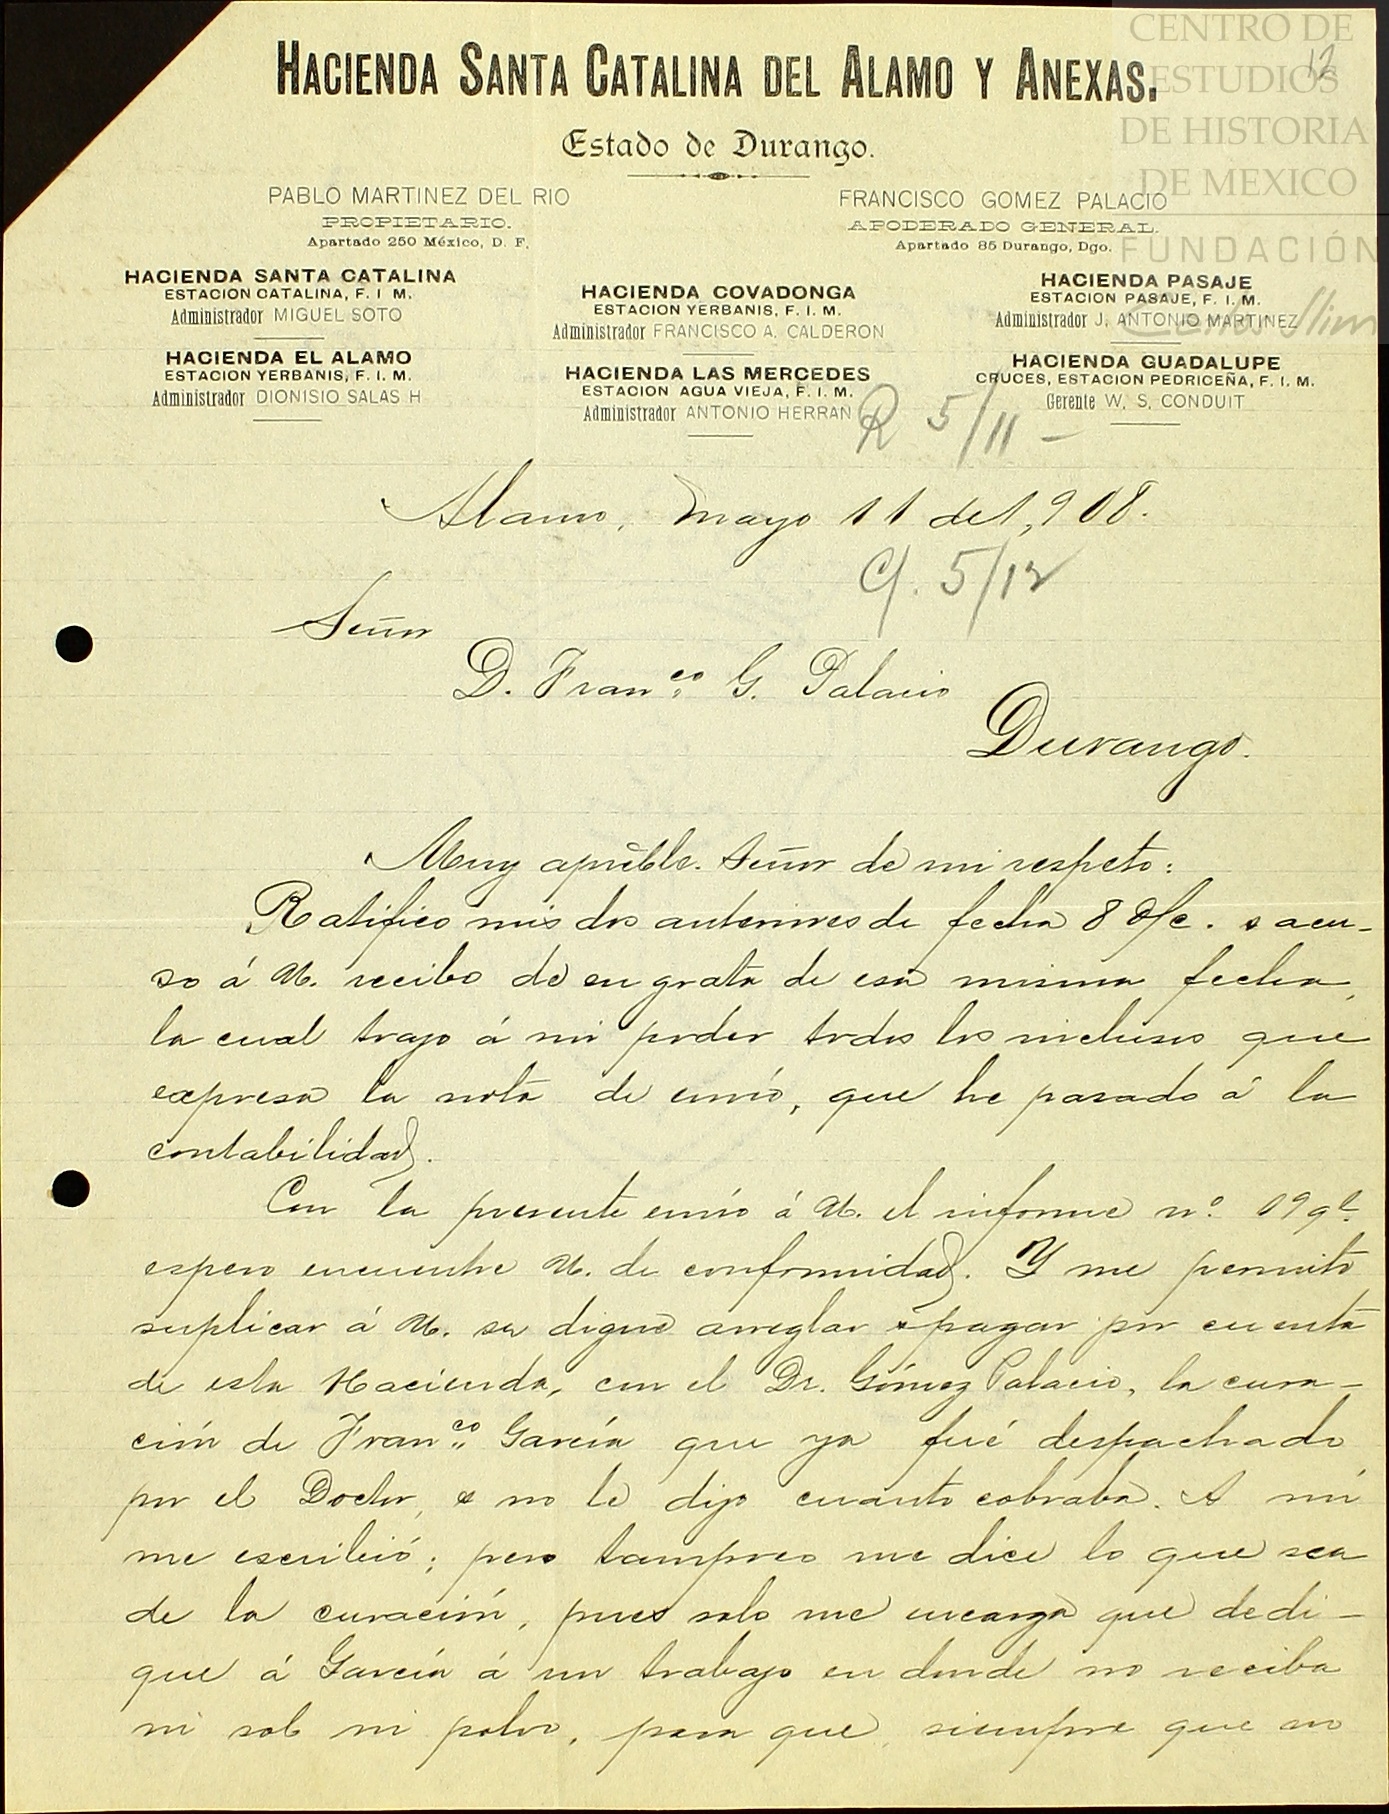 CENTRO DE
ESTUDIOS
DE HISTORIA
DE MEXICO
FUNDACIÓN
Carlos Slim
12
HACIENDA SANTA CATALINA DEL ALAMO Y ANEXAS.
Estado de Durango.
PABLO MARTINEZ DEL RIO
PROPIETARIO.
Apartado 250 México, D. F.
FRANCISCO GOMEZ PALACIO
APODERADO GENERAL.
Apartado 85 Durango, Dgo.
HACIENDA SANTA CATALINA
ESTACION CATALINA, F. I. M.
Administrador MIGUEL SOTO
HACIENDA COVADONGA
ESTACION YERBANIS, F. I. M.
Administrador FRANCISCO A. CALDERON
HACIENDA PASAJE
ESTACION PASAJE, F. I. M.
Administrador J. ANTONIO MARTINEZ
HACIENDA EL ALAMO
ESTACION YERBANIS, F. I. M.
Administrador DIONISIO SALAS H
HACIENDA LAS MERCEDES
ESTACION AGUA VIEJA, F. I. M.
Administrador ANTONIO HERRAN
HACIENDA GUADALUPE
CRUCES, ESTACION PEDRICEÑA, F. I. M.
Gerente W. S. CONDUIT
R 5/11 -
Alamo, Mayo 11 de 1,908.
C/. 5/12
Señor
D. Franco. G. Palacio
Durango.
Muy apreble. Señor de mi respeto:
Ratifico mis dos anteriores de fecha 8 d/c. y acu-
so á U. recibo de su grata de esa misma fecha,
la cual trajo á mi poder todos los inclusos que
expresa la nota de envío, que he pasado á la
contabilidad.
Con la presente envío á U. el informe no. 19 qe.
espero encuentre U. de conformidad. Y me permito
suplicar á U. se digne arreglar y pagar por cuenta
de esta Hacienda, con el Dr. Gómez Palacio, la cura-
ción de Franco. García que ya fué despachado
por el Doctor, y no le dijo cuanto cobraba. A mí
me escribió; pero tampoco me dice lo que sea
de la curación, pues solo me encarga que dedi-
que á García á un trabajo en donde no reciba
ni sol ni polvo, para que, siempre que no